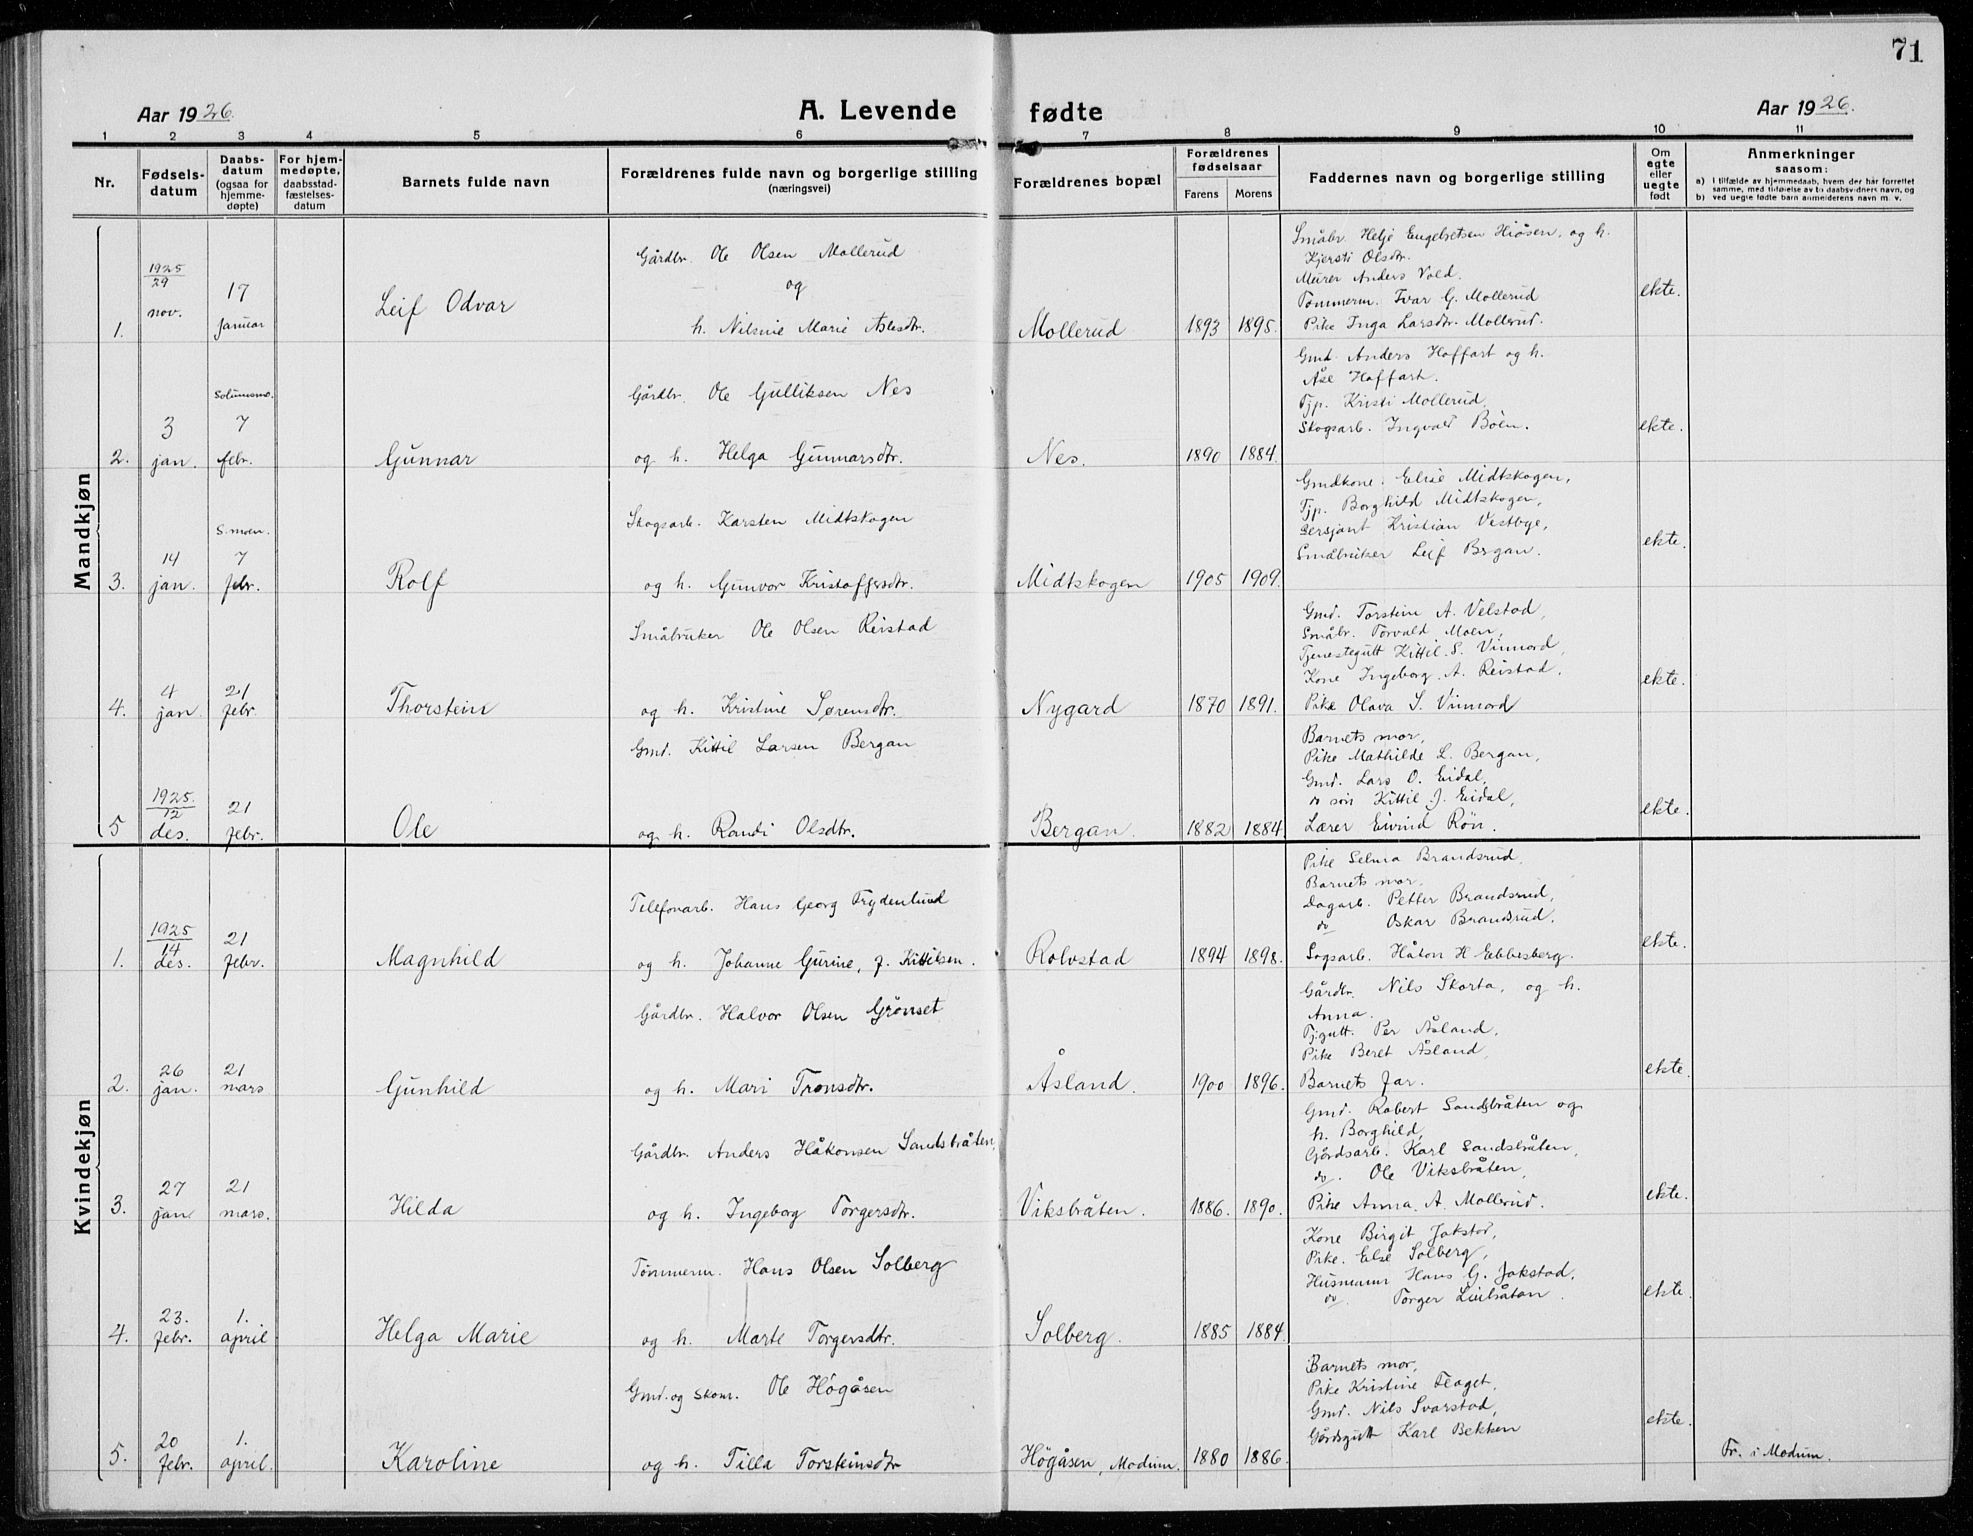 71
Aar 1926.
A. Levende fødte
Aar 1926.
1 2 3 4 5 6 7 8 9 10 11
Nr.
Fødsels-
datum
Daabs-
datum
(ogsaa for
hjemme-
døpte)
For hjem-
medøpte,
daabsstad-
fæstelses-
datum
Barnets fulde navn
Forældrenes fulde navn og borgerlige stilling
(næringsvei)
Forældrenes bopæl
Forældrenes
fødselsaar
Farens Morens
Faddernes navn og borgerlige stilling
Om
egte
eller
uegte
født
Anmerkninger
saasom:
a) i tilfælde av hjemmedaab, hvem der har forrettet
samme, med tilføielse av to daabsvidners navn, og
b) ved uegte fødte barn anmelderens navn m. v.
Mandkjøn
1.
1925
29
nov.
17
Januar
Leif Odvar
Gårdbr. Ole Olsen Mollerud
og
h. Nilsine Marie Aslesdtr.
Mollerud
1893 1895.
Småbr. Helje Engebretsen Hiåsen, og h.
Kjersti Olsdtr.
Murer Anders Vold.
Tømmerm. Ivar G. Mollerud
Pike Inga Larsdtr. Mollerud.
ekte.
2.
3
jan.
Solumsmo.
7
febr.
Gunnar
Gårdbr. Ole Gulliksen Nes
og h. Helga Gunnarsdtr.
Nes.
1890 1884.
Gmd. Anders Hoffart og h.
Åse Hoffart.
Tjp. Kristi Mollerud.
Skogsarb. Ingvald Böen.
ekte.
3.
14
jan.
S. moen.
7
febr.
Rolf
Skogsarb. Karsten Midtskogen
og h. Gunvor Kristoffersdtr.
Midtskogen
1905 1909.
Gmdkone. Elise Midtskogen,
Tjp. Borghild Midtskogen,
Sersjant Kristian Vestbye,
Småbruker Leif Brgan.
ekte.
4.
4
jan.
21
febr.
Thorstein
Småbruker Ole Olsen Reistad
og h. Kristine Sørensdtr.
Nygard
1870 1891.
Gmd. Torstein A. Velstad,
Småbr. Torvald Moen,
Tjenestegutt Kittil. S. Vinnord,
Kone Ingeborg A. Reistad.
Pike Olava S. Vinnord
ekte.
5
1925.
12
des.
21
febr.
Ole
Gmd. Kittil Larsen Bergan
og h. Randi Olsdtr.
Bergan.
1882 1884
Barnets mor,
Pike Mathilde L. Bergan,
Gmd. Lars O. Eidal,
do søn Kittil J. Eidal,
Lærer Eivind Røn.
ekte.
Kvindekjøn
1.
1925
14
des.
21
febr.
Magnhild
Telefonarb. Hans Georg Frydenlund
og h. Johanne Gurine, f. Kittilsen.
Rolvstad
1894 1898.
Pike Selma Brandsrud.
Barnets mor,
Dagarb. Petter Brandsrud,
do Oskar Brandsrud.
Sagsarb. Håkon H Ebbesberg.
ekte.
2.
26
jan.
21
mars
Gunhild
Gårdbr. Halvor Olsen Grønset
og h. Mari Tronsdtr.
Åsland.
1900 1896.
Gårdbr. Nils Skarta, og h.
Anna.
Tj.gutt. Per Åsland,
Pike Beret Åsland,
Barnets far.
ekte.
3.
27
jan
21
mars.
Hilda
Gårdbr. Anders Håkonsen Sandsbråten,
og h. Ingeborg Torgersdtr.
Viksbråten.
1886. 1890.
Gmd. Robert Sandsbråten og
h. Borghild,
Gårdsarb. Karl Sandsbråten,
do. Ole Viksbråten,
Pike Anna. A. Mollerud.
ekte.
4.
23.
febr.
1.
april
Helga Marie
Tömmerm. Hans Olsen Solberg
og h. Marte Torgersdtr.
Solberg.
1885 1884.
Kone Birgit Jokstad,
Pike. Else Solberg,
Husmann Hans G. Jokstad,
do. Torger
ekte.
5.
20
febr.
1.
april.
Karoline
Gmd. og Skom. Ole Högåsen
og h. Tilla Torsteinsdtr
Högåsen, Modum.
1880 1886.
Barnets mor,
Pike Kristine Flaget,
Gmd. Nils Svarstad,
Gårdsgutt Karl Bekken
ekte.
Fr. i Modum.